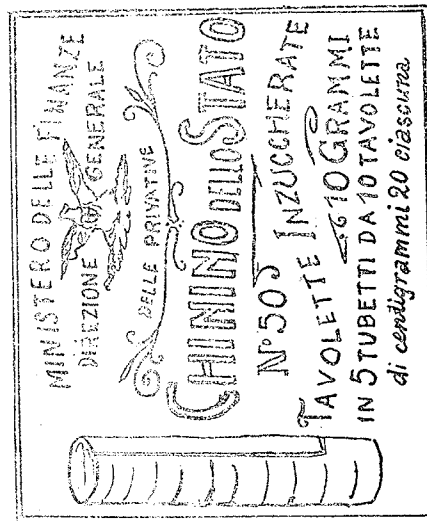 MINISTERO DELLE FINANZE
DIREZIONE GENERALE
DELLE PRIVATIVE
CHININO DELLO STATO
No 50
TAVOLETTE INZUCCHERATE
10 GRAMMI
IN 5 TUBETTI DA 10 TAVOLETTE
di centigrammi 20 ciascuna